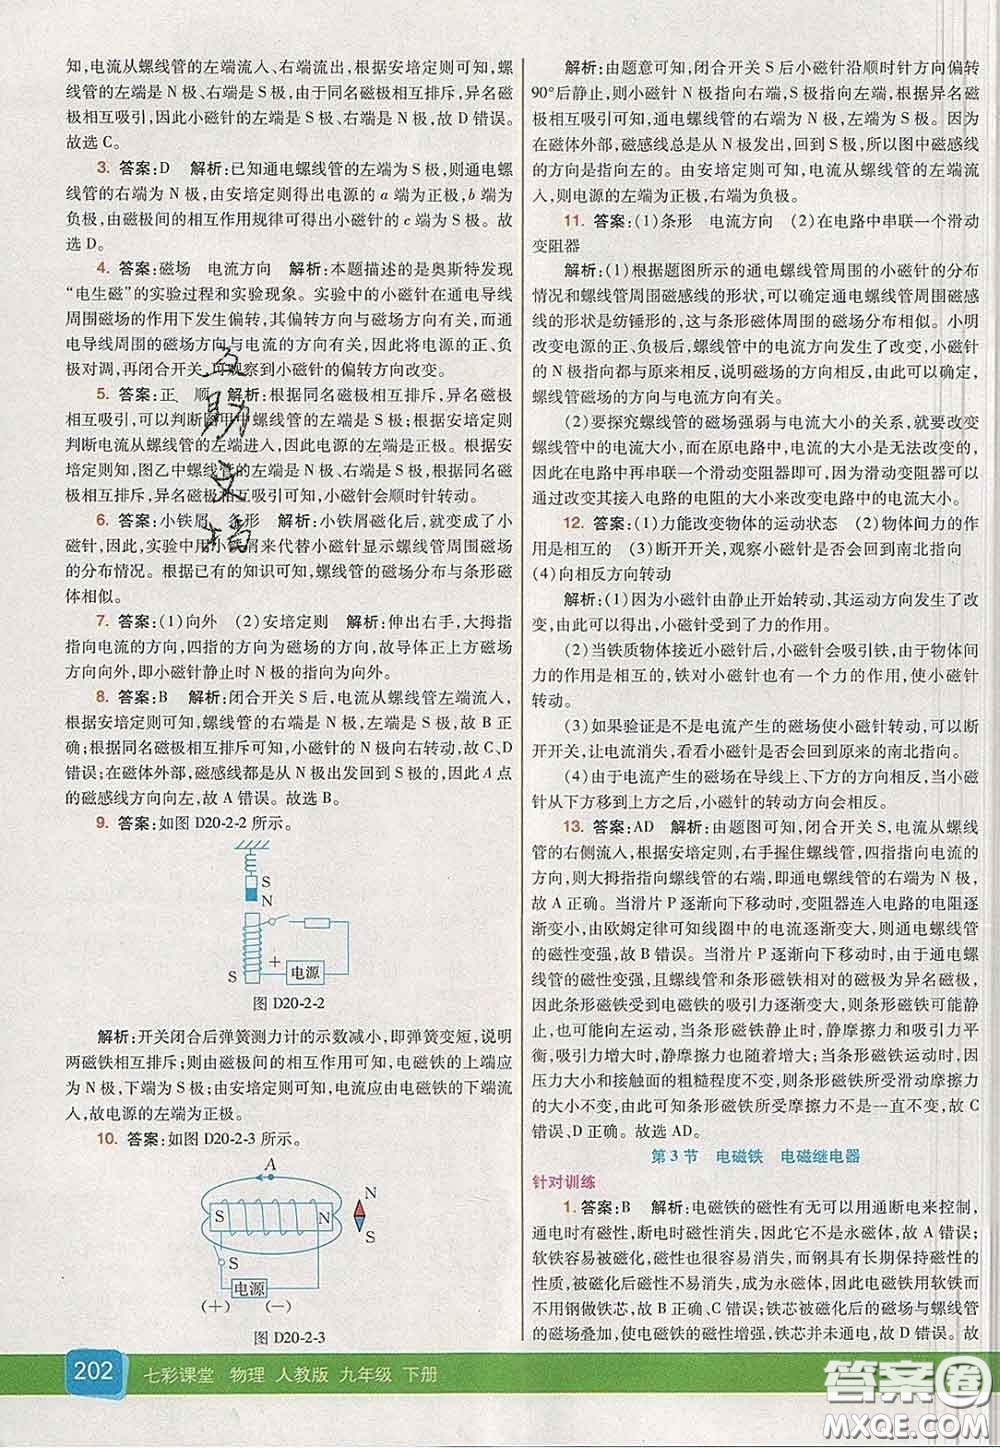 知,电流从螺线管的左端流入、右端流出,根据安培定则可知,螺
线管的左端是 S 极、右端是 N 极,由于同名磁极相互排斥,异名磁
极相互吸引,因此小磁针的左端是 S 极、右端是 N 极,故 D 错误。
故选 C。
3. 答案:D 解析:已知通电螺线管的左端为 S 极,则通电螺
线管的右端为 N 极,由安培定则得出电源的 a 端为正极,b 端为
负极,由磁极间的相互作用规律可得出小磁针的 c 端为 S 极。故
选 D。
4. 答案:磁场 电流方向 解析:本题描述的是奥斯特发现
“电生磁”的实验过程和实验现象。实验中的小磁针在通电导线
周围磁场的作用下发生偏转,其偏转方向与磁场方向有关,而通
电导线周围的磁场方向与电流的方向有关,因此将电源的正、负
极对调,再闭合开关,可观察到小磁针的偏转方向改变。
5. 答案:正 顺 解析:根据同名磁极相互排斥,异名磁极
相互吸引,可以判断图甲中螺线管的左端是 S 极;根据安培定则
判断电流从螺线管的左端进入,因此电源的左端是正极。根据安
培定则可知,图乙中螺线管的左端是 S 极,右端是 N 极,根据同名
磁极相互排斥,异名磁极相互吸引可知,小磁针会顺时针转动。
6. 答案:小铁屑 条形 解析:小铁屑磁化后,就变成了小
磁针,因此,实验中用小铁屑来代替小磁针显示螺线管周围磁场
的分布情况。根据已有的知识可知,螺线管的磁场分布与条形磁
体相似。
7. 答案:(1)向外 (2)安培定则 解析:伸出右手,大拇指
指向电流的方向,四指的方向为磁场的方向,故导体正上方磁场
方向向外,即小磁针静止时 N 极的指向为向外。
8. 答案:B 解析:闭合开关 S 后,电流从螺线管左端流入,
根据安培定则可知,螺线管的右端是 N 极,左端是 S 极,故 B 正
确;根据同名磁极相互排斥可知,小磁针的 N 极向右转动,故 C、D
错误;在磁体外部,磁感线由 N 极出发回到 S 极,因此 A 点
的磁感线方向向左,故 A 错误。故选 B。
9. 答案:如图 D20-2-2 所示。
S
N
S
+
电源
图 D20-2-2
解析:开关闭合后弹簧测力计的示数减小,即弹簧变短,说明
两磁铁相互排斥;则由磁极间的相互作用可知,电磁铁的上端应
为 N 极,下端为 S 极;由安培定则可知,电流应由电磁铁的下端流
入,故电源的左端为正极。
10. 答案:如图 D20-2-3 所示。
A
S
N
N
S
S
电源
(+) (-)
图 D20-2-3
解析:由题意可知,闭合开关 S 后小磁针沿顺时针方向偏转
90°后静止,则小磁针 N 极指向右端,S 极指向左端,根据异名磁
极相互吸引可知,通电螺线管的左端为 S 极,右端为 N 极。因为
在磁体外部,磁感线总是从 N 极发出,回到 S 极,所以 A 点磁感线
的方向是指向左的。由安培定则可知,电流从螺线管的左端流
入,则电源的左端为正极,右端为负极。
11. 答案:(1)条形 电流方向 (2)在电路中串联一个滑动
变阻器
解析:(1)根据题图所示的通电螺线管周围的小磁针的分布
情况和螺线管周围磁感线的形状,可以确定通电螺线管周围的磁
感线的形状是纺锤形的,这与条形磁体周围的磁场分布相似。小明
改变电源的正、负极后,螺线管中的电流方向发生了改变,小磁针
的 N 极指向都与原来相反,说明磁场的方向也相反,由此可知通电
螺线管磁场的方向与电流方向有关。
(2)要探究螺线管的磁场强弱与电流大小的关系,就要改变
螺线管中的电流大小,而在原电路中,电流的大小是无法改变的,
因此在电路中再串联一个滑动变阻器即可,因为滑动变阻器可以
通过改变其接入电路的电阻的大小来改变电路中的电流大小。
12. 答案:(1)力能改变物体的运动状态 (2)物体间力的作
用是相互的 (3)断开开关,观察小磁针是否会回到南北指向
(4)向相反方向转动
解析:(1)因为小磁针由静止开始转动,其运动方向发生了改
变,所以说明小磁针受到了力的作用。
(2)当铁质物体接近小磁针后,小磁针会吸引铁,由于物体间
力的作用是相互的,铁对小磁针也有一个力的作用,使小磁针
转动。
(3)如果验证是不是电流产生的磁场使小磁针转动,可以断
开开关,让电流消失,看看小磁针是否会回到原来的南北指向。
(4)由于电流产生的磁场在导线上、下方的方向相反,当小磁
针从下方移到上方之后,小磁针的转动方向会相反。
13. 答案:AD 解析:由题图可知,闭合开关 S,电流从螺线
管的右侧流入,根据安培定则,右手握住螺线管,四指指向电流的
方向,则大拇指指向螺线管的右端,即通电螺线管的右端为 N 极,
故 A 正确。当滑片 P 逐渐向下移动时,变阻器连入电路的电阻
逐渐变小,由欧姆定律可知线圈中的电流逐渐变大,则通电螺线管
的磁性变强,故 B 错误。当滑片 P 逐渐向下移动时,由于通电螺线
管的磁性变强,且螺线管和条形磁铁相对的磁极为异名磁极,
因此条形磁铁受到电磁铁的吸引力逐渐变大,则条形磁铁可能静
止,也可能向左运动,当条形磁铁静止时,静摩擦力和吸引力平
衡,吸引力变大,静摩擦力也随着增大;当条形磁铁运动时,因
压力大小和接触面的粗糙程度不变,则条形磁铁所受滑动摩擦力
的大小不变,由此可知条形磁铁所受摩擦力可能逐渐变大,故 C
错误,D 正确。故选 AD。
第 3 节 电磁铁 电磁继电器
针对训练
1. 答案:B 解析:电磁铁的磁性有无可以用通断电来控制,
通电时有磁性,断电时磁性消失,因此它不是永磁体,故 A 错误;
软铁容易被磁化,磁性也很容易消失,而钢具有长期保持磁性的
性质,被磁化后磁性不易消失,成为永磁体,因此电磁铁用软铁而
不用钢做铁芯,故 B 正确、C 错误;铁芯被磁化后的磁场与螺线管的
磁场叠加,使电磁铁的磁性增强,铁芯并未通电,故 D 错误。故
202 七彩课堂 物理 人教版 九年级 下册
答案圈
MXQE.COM